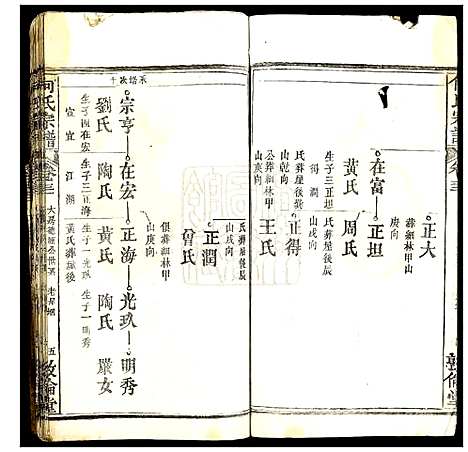 正大
葬細林甲山
庚向
在富
正坦
黃氏
周氏
生子三正坦
得潤
氏葬屋後辰
山戌向
正得
王氏
氏葬屋後巽
山乾向
公葬細林甲
山庚向
正潤
曾氏
氏葬屋後辰
山戌向
俱葬細林甲
山庚向
系譜次十
宗亨
在宏
正海
光玖
明秀
劉氏
陶氏
黃氏
陶氏
嚴女
生子四在宏
宣宜
生子三正海
江湖
生子一光玖
黃氏葬屋後
生子一明秀
何氏宗譜
卷三
五
敦倫堂